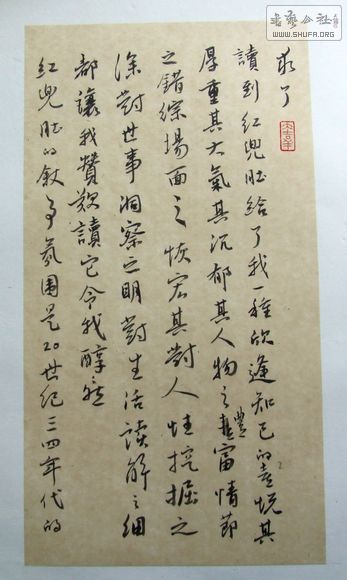 书艺公社
WWW.SHUFA.ORG
了
大吉羊
讀到红兜肚给了我一種欣逢知己的喜悦其
厚重其大氣其沉郁其人物之豐富情節
之錯綜場面之恢宏其對人性挖掘之
深對世事洞察之明對生活读解之细
都讓我赞歎讀它令我
红兜肚的叙事氛圍是20世紀三四年代的